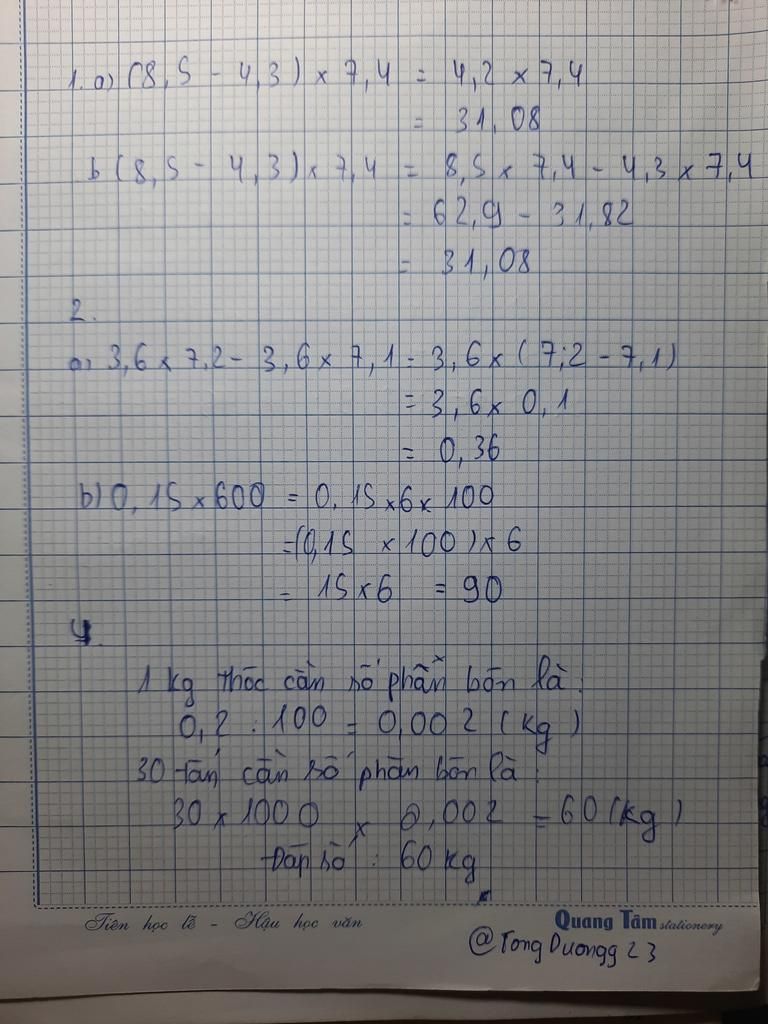 1. a) (8,5 - 4,3) × 7,4 = 4,2 × 7,4
= 31,08
b (8,5 - 4,3) × 7,4 = 8,5 × 7,4 - 4,3 × 7,4
= 62,9 - 31,82
= 31,08
2.
a) 3,6 × 7,2 - 3,6 × 7,1 = 3,6 × (7,2 - 7,1)
= 3,6 × 0,1
= 0,36
b) 0,15 × 600 = 0,15 × 6 × 100
= (0,15 × 100) × 6
= 15 × 6 = 90
4.
1 kg thóc cần số phần bón là:
0,2 : 100 = 0,002 (kg)
30 tấn cần số phần bón là:
30 × 1000 × 0,002 = 60 (kg)
Đáp số : 60 kg
Tiên học lễ - Hậu học văn
Quang Tâm stationery
@TongDuongg23